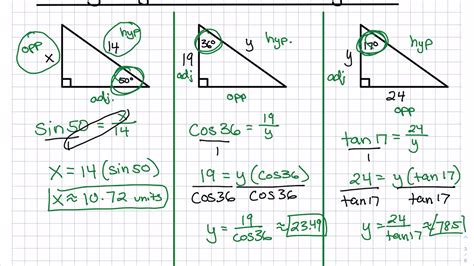 opp
x
14
hyp
50°
adj.
sin 50 = x/14
x = 14 (sin 50)
x ≈ 10.72 units
36°
19
adj
y
hyp.
opp
cos 36 / 1 = 19/y
19 / cos 36 = y (cos 36) / cos 36
y = 19/cos 36 ≈ 23.49
y
adj
hyp.
24
opp
tan 17 / 1 = 24/y
24 / tan 17 = y (tan 17) / tan 17
y = 24/tan 17 ≈